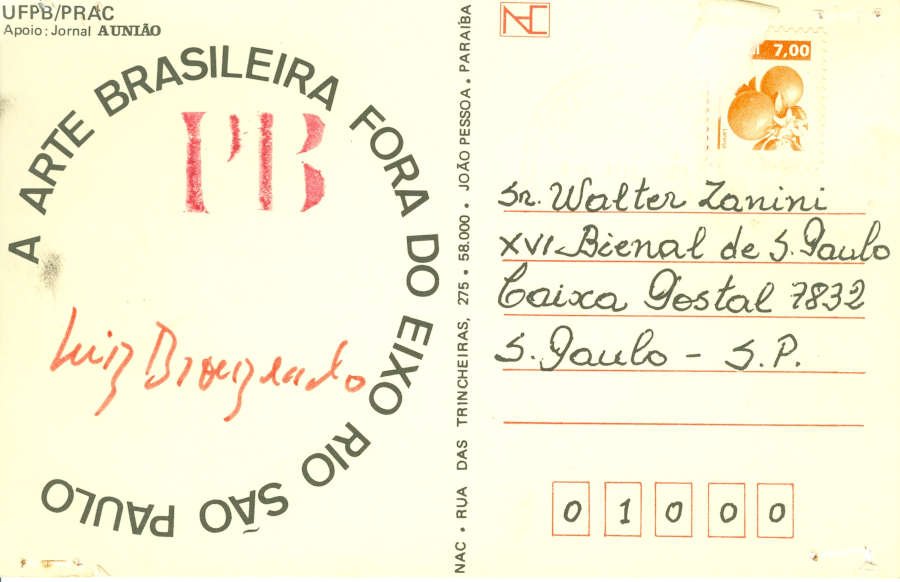 UFPB/PRAC
Apoio: Jornal A UNIÃO
A ARTE BRASILEIRA FORA DO EIXO RIO SÃO PAULO
PB
Luiz Bronzeado
NAC • RUA DAS TRINCHEIRAS, 275 • 58.000 • JOÃO PESSOA • PARAÍBA
NAC
7,00
Sr. Walter Zanini
XVI Bienal de S. Paulo
Caixa Postal 7832
S. Paulo - S.P.
0 1 0 0 0